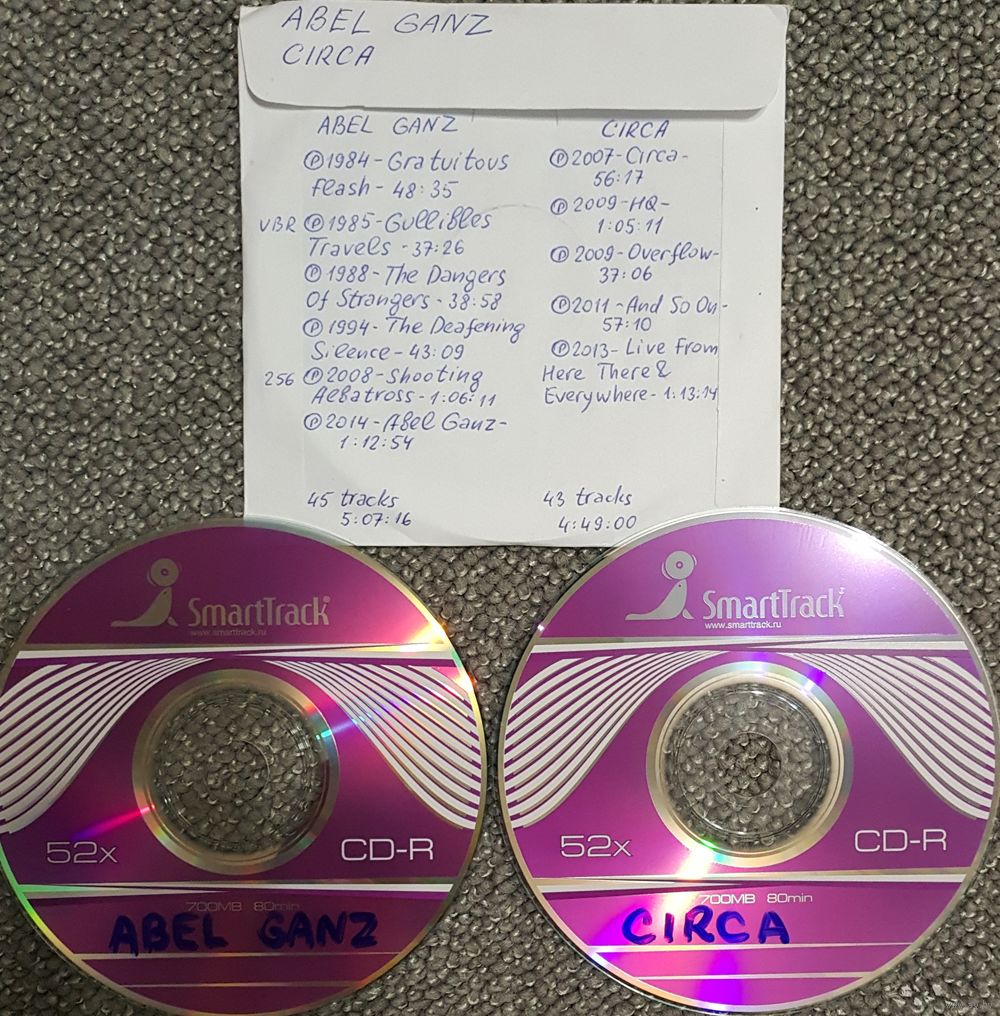 ABEL GANZ
CIRCA
ABEL GANZ
Ⓟ1984-Gratuitous
flash-48:35
VBR Ⓟ1985-Gullibles
Travels-37:26
Ⓟ1988-The Dangers
Of Strangers-38:58
Ⓟ1994-The Deafening
Silence-43:09
256 Ⓟ2008-Shooting
Albatross-1:06:11
Ⓟ2014-Abel Ganz-
1:12:54
45 tracks
5:07:16
CIRCA
Ⓟ2007-Circa-
56:17
Ⓟ2009-HQ-
1:05:11
Ⓟ2009-Overflow-
37:06
Ⓟ2011-And So On-
57:10
Ⓟ2013-Live From
Here There &
Everywhere-1:13:14
43 tracks
4:49:00
SmartTrack
www.smarttrack.ru
52x CD-R
700MB 80min
ABEL GANZ
SmartTrack
www.smarttrack.ru
52x CD-R
700MB 80min
CIRCA